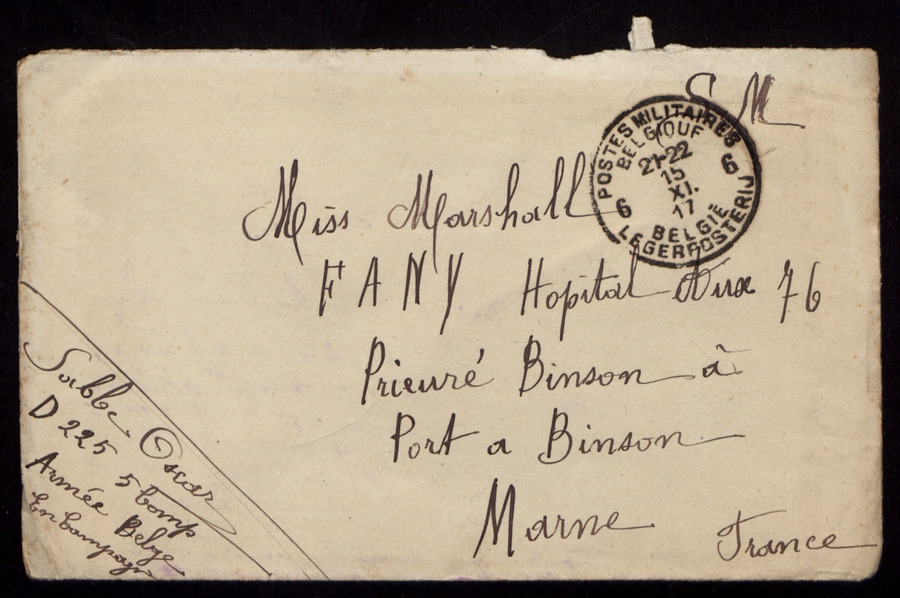 S M
POSTES MILITAIRES
BELGIQUE
21-22
15
XI.
17
6 6
BELGIË
LEGERPOSTERIJ
Miss Marshall
FANY Hopital Aux 76
Prieuré Binson à
Port a Binson
Marne
France
Sabbe Oscar
D 225 5 Comp
Armée Belge
En Campagne